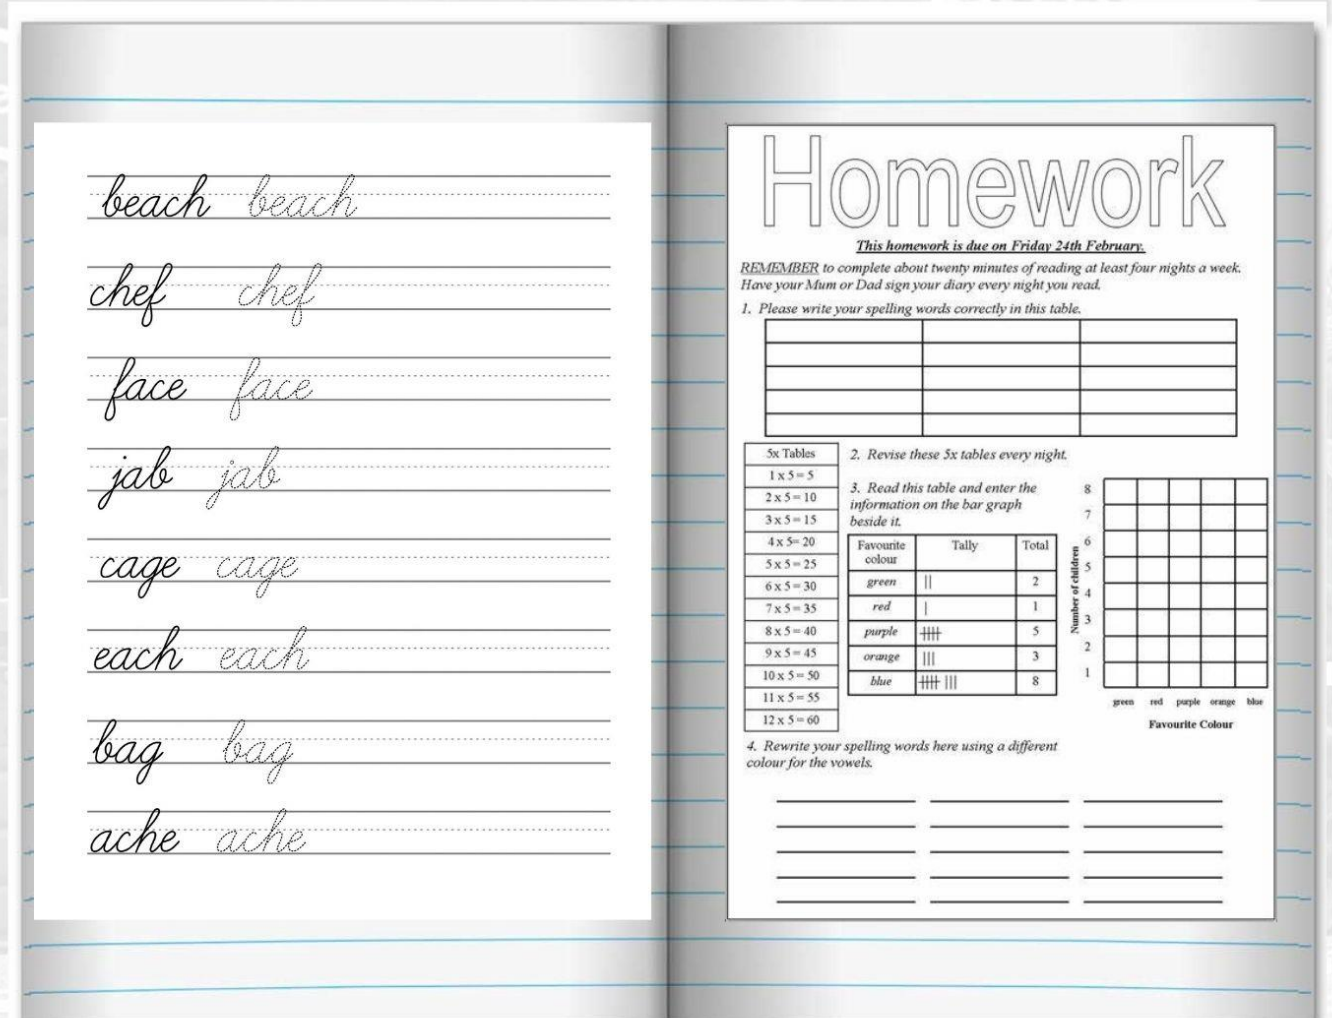 beach beach
chef chef
face face
jab jab
cage cage
each each
bag bag
ache ache
Homework
This homework is due on Friday 24th February.
REMEMBER to complete about twenty minutes of reading at least four nights a week.
Have your Mum or Dad sign your diary every night you read.
1. Please write your spelling words correctly in this table.
5x Tables
1 x 5 = 5
2 x 5 = 10
3 x 5 = 15
4 x 5= 20
5 x 5 = 25
6 x 5 = 30
7 x 5 = 35
8 x 5 = 40
9 x 5 = 45
10 x 5 = 50
11 x 5 = 55
12 x 5 = 60
2. Revise these 5x tables every night.
3. Read this table and enter the
information on the bar graph
beside it.
Favourite colour Tally Total
green 2
red 1
purple 5
orange 3
blue 8
Number of children
8
7
6
5
4
3
2
1
green red purple orange blue
Favourite Colour
4. Rewrite your spelling words here using a different
colour for the vowels.